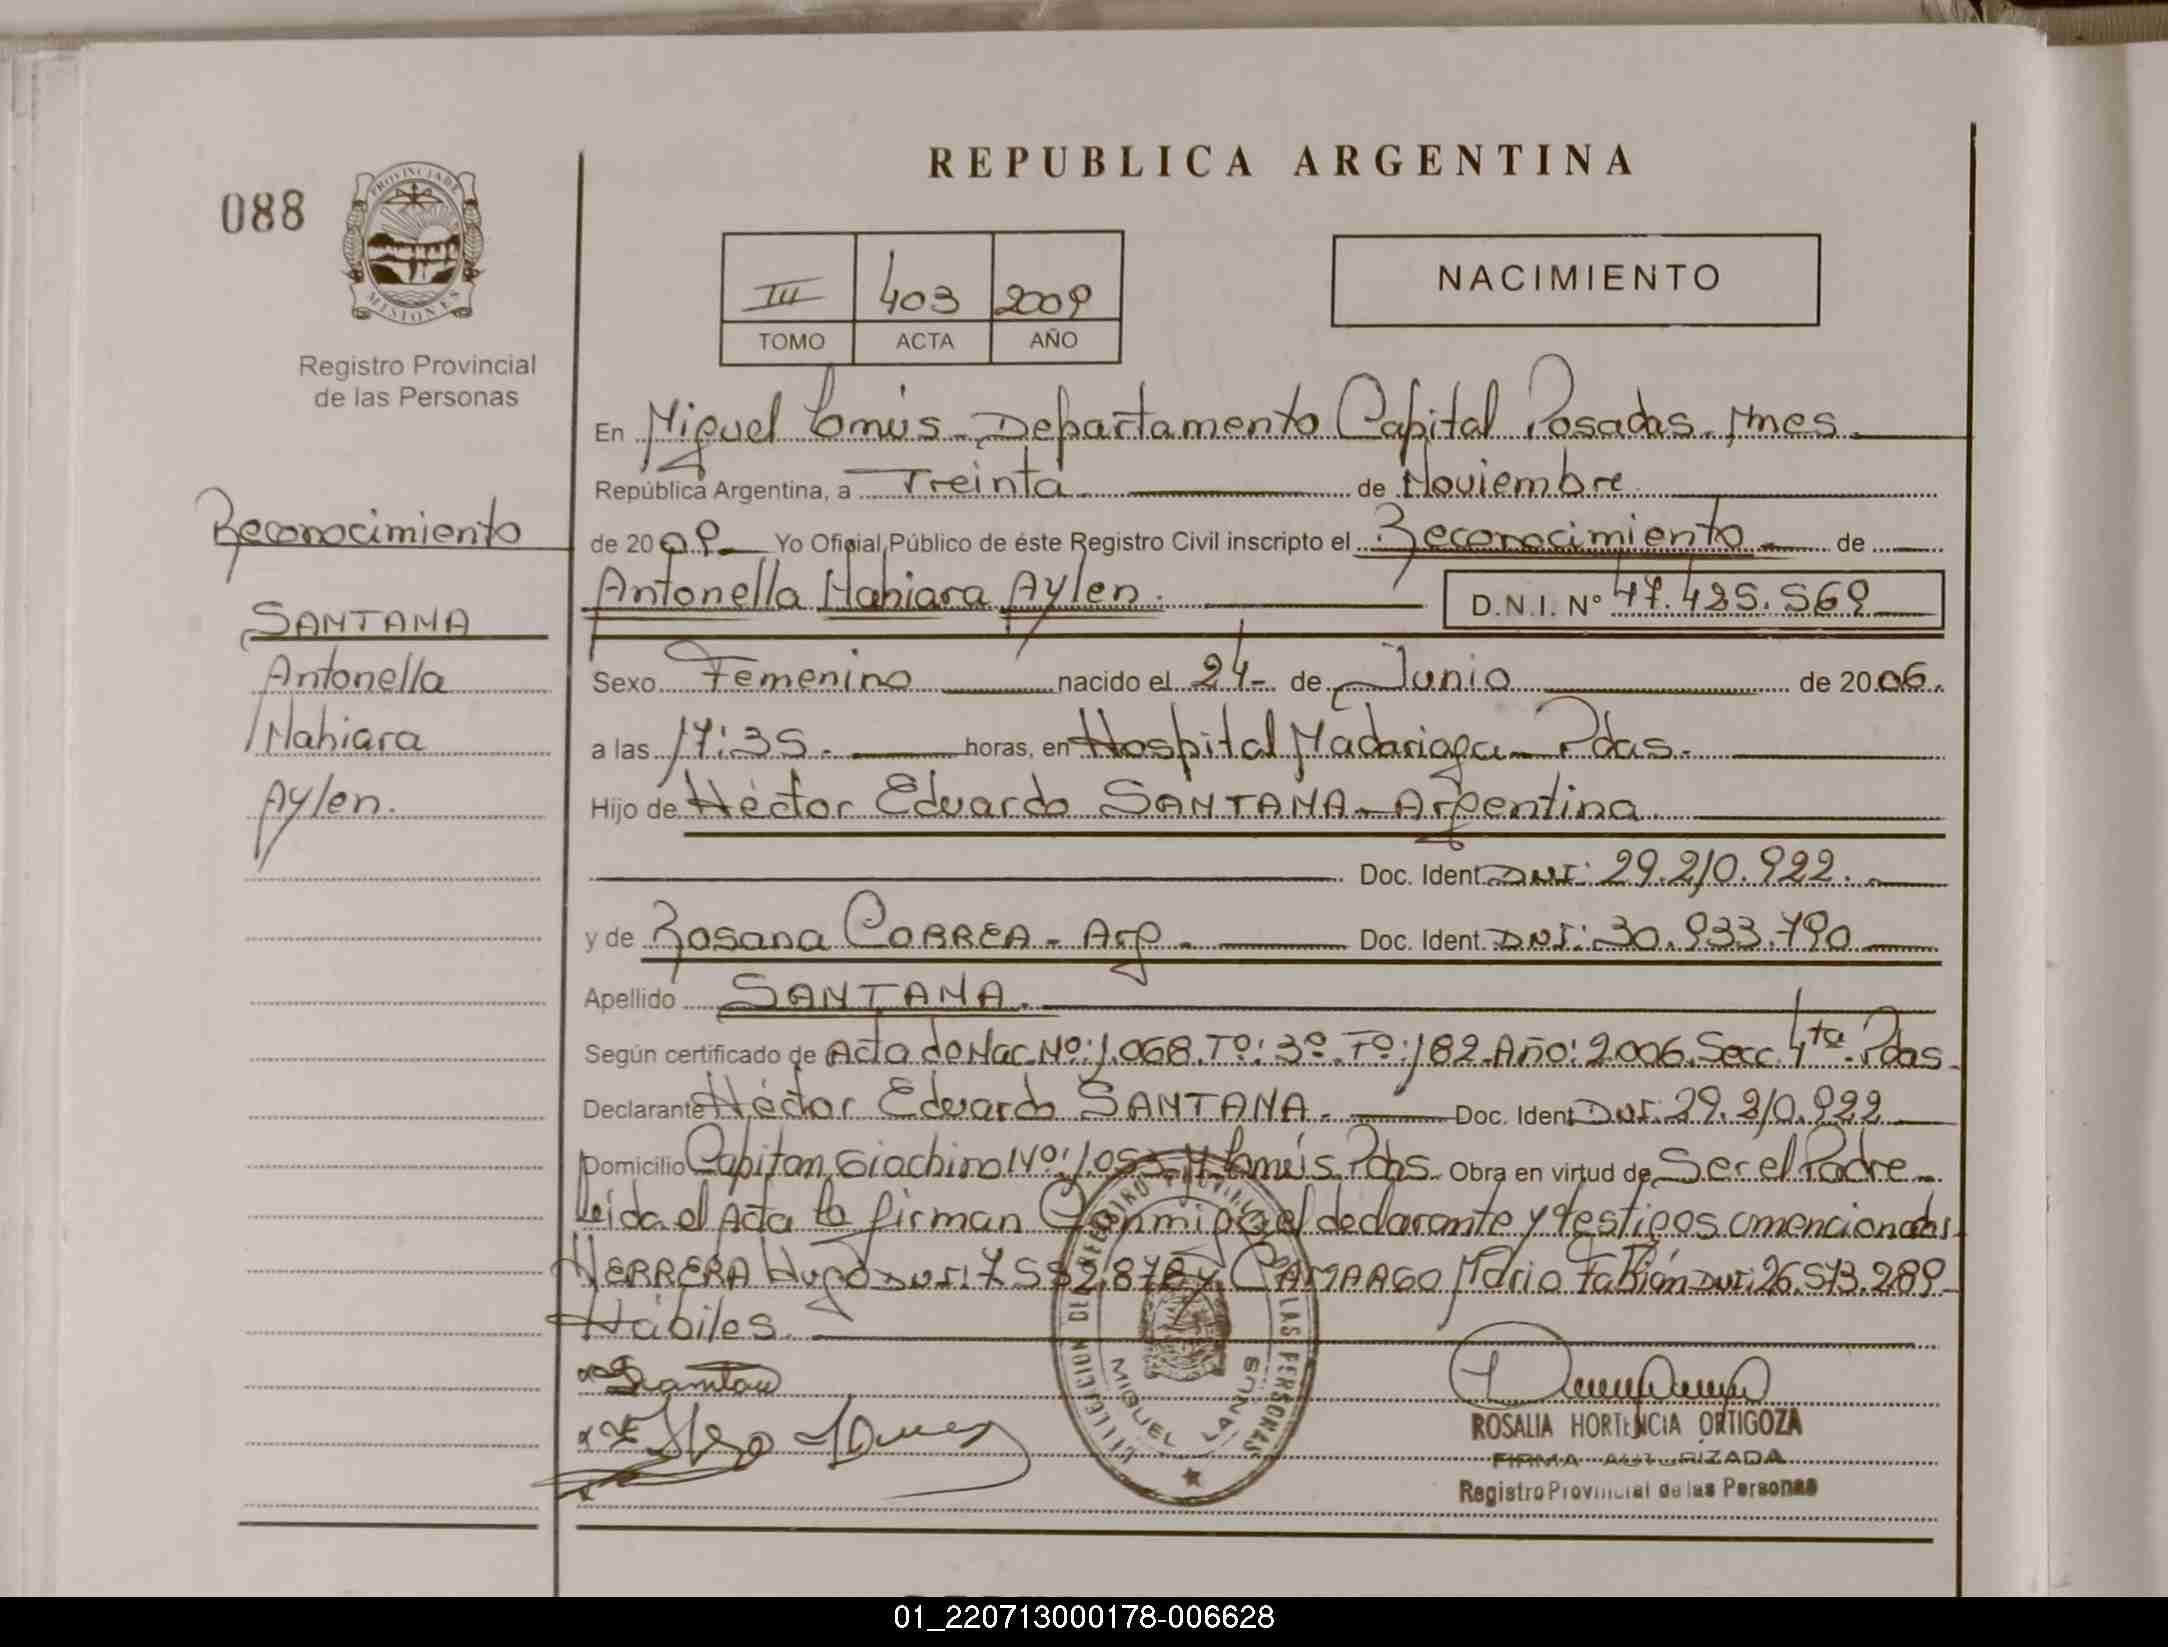 REPUBLICA ARGENTINA
088
PROVINCIA DE
MISIONES
Registro Provincial
de las Personas
III 403 2009
TOMO ACTA AÑO
NACIMIENTO
En Miguel Lanús - Departamento Capital Posadas. Mnes.
República Argentina, a Treinta de Noviembre
de 2009 Yo Oficial Público de éste Registro Civil inscripto el Reconocimiento - de
Antonella Nahiara Aylen. D.N.I. Nº 47.425.569
Reconocimiento
SANTANA
Antonella
Nahiara
Aylen.
Sexo Femenino nacido el 24- de Junio de 2006.
a las 17:35. horas, en Hospital Madariaga - Pdas.
Hijo de Héctor Eduardo SANTANA - Argentina.
Doc. Ident. DNI: 29.210.922.
y de Rosana CORREA - Arg. Doc. Ident. DNI: 30.933.790
Apellido SANTANA.
Según certificado de Acta de Nac. Nº: 1.068. Tº: 3º Fº: 182. Año: 2.006. Secc. 4ta. Pdas.
Declarante Héctor Eduardo SANTANA. Doc. Ident. DNI: 29.210.922
Domicilio Capitan Giachino Nº: 1.053 - M. Lanús. Pdas. Obra en virtud de Ser el Padre
Leida el Acta la firman Conmigo el declarante y testigos
HERRERA Hugo DNI: 7.552.878 y CAMARGO Mario Fabián DNI: 26.573.289
Hábiles.
DELEGACION DEL REGISTRO PROVINCIAL DE LAS PERSONAS
MIGUEL LANUS
ROSALIA HORTENCIA ORTIGOZA
FIRMA AUTORIZADA
Registro Provincial de las Personas
01_220713000178-006628